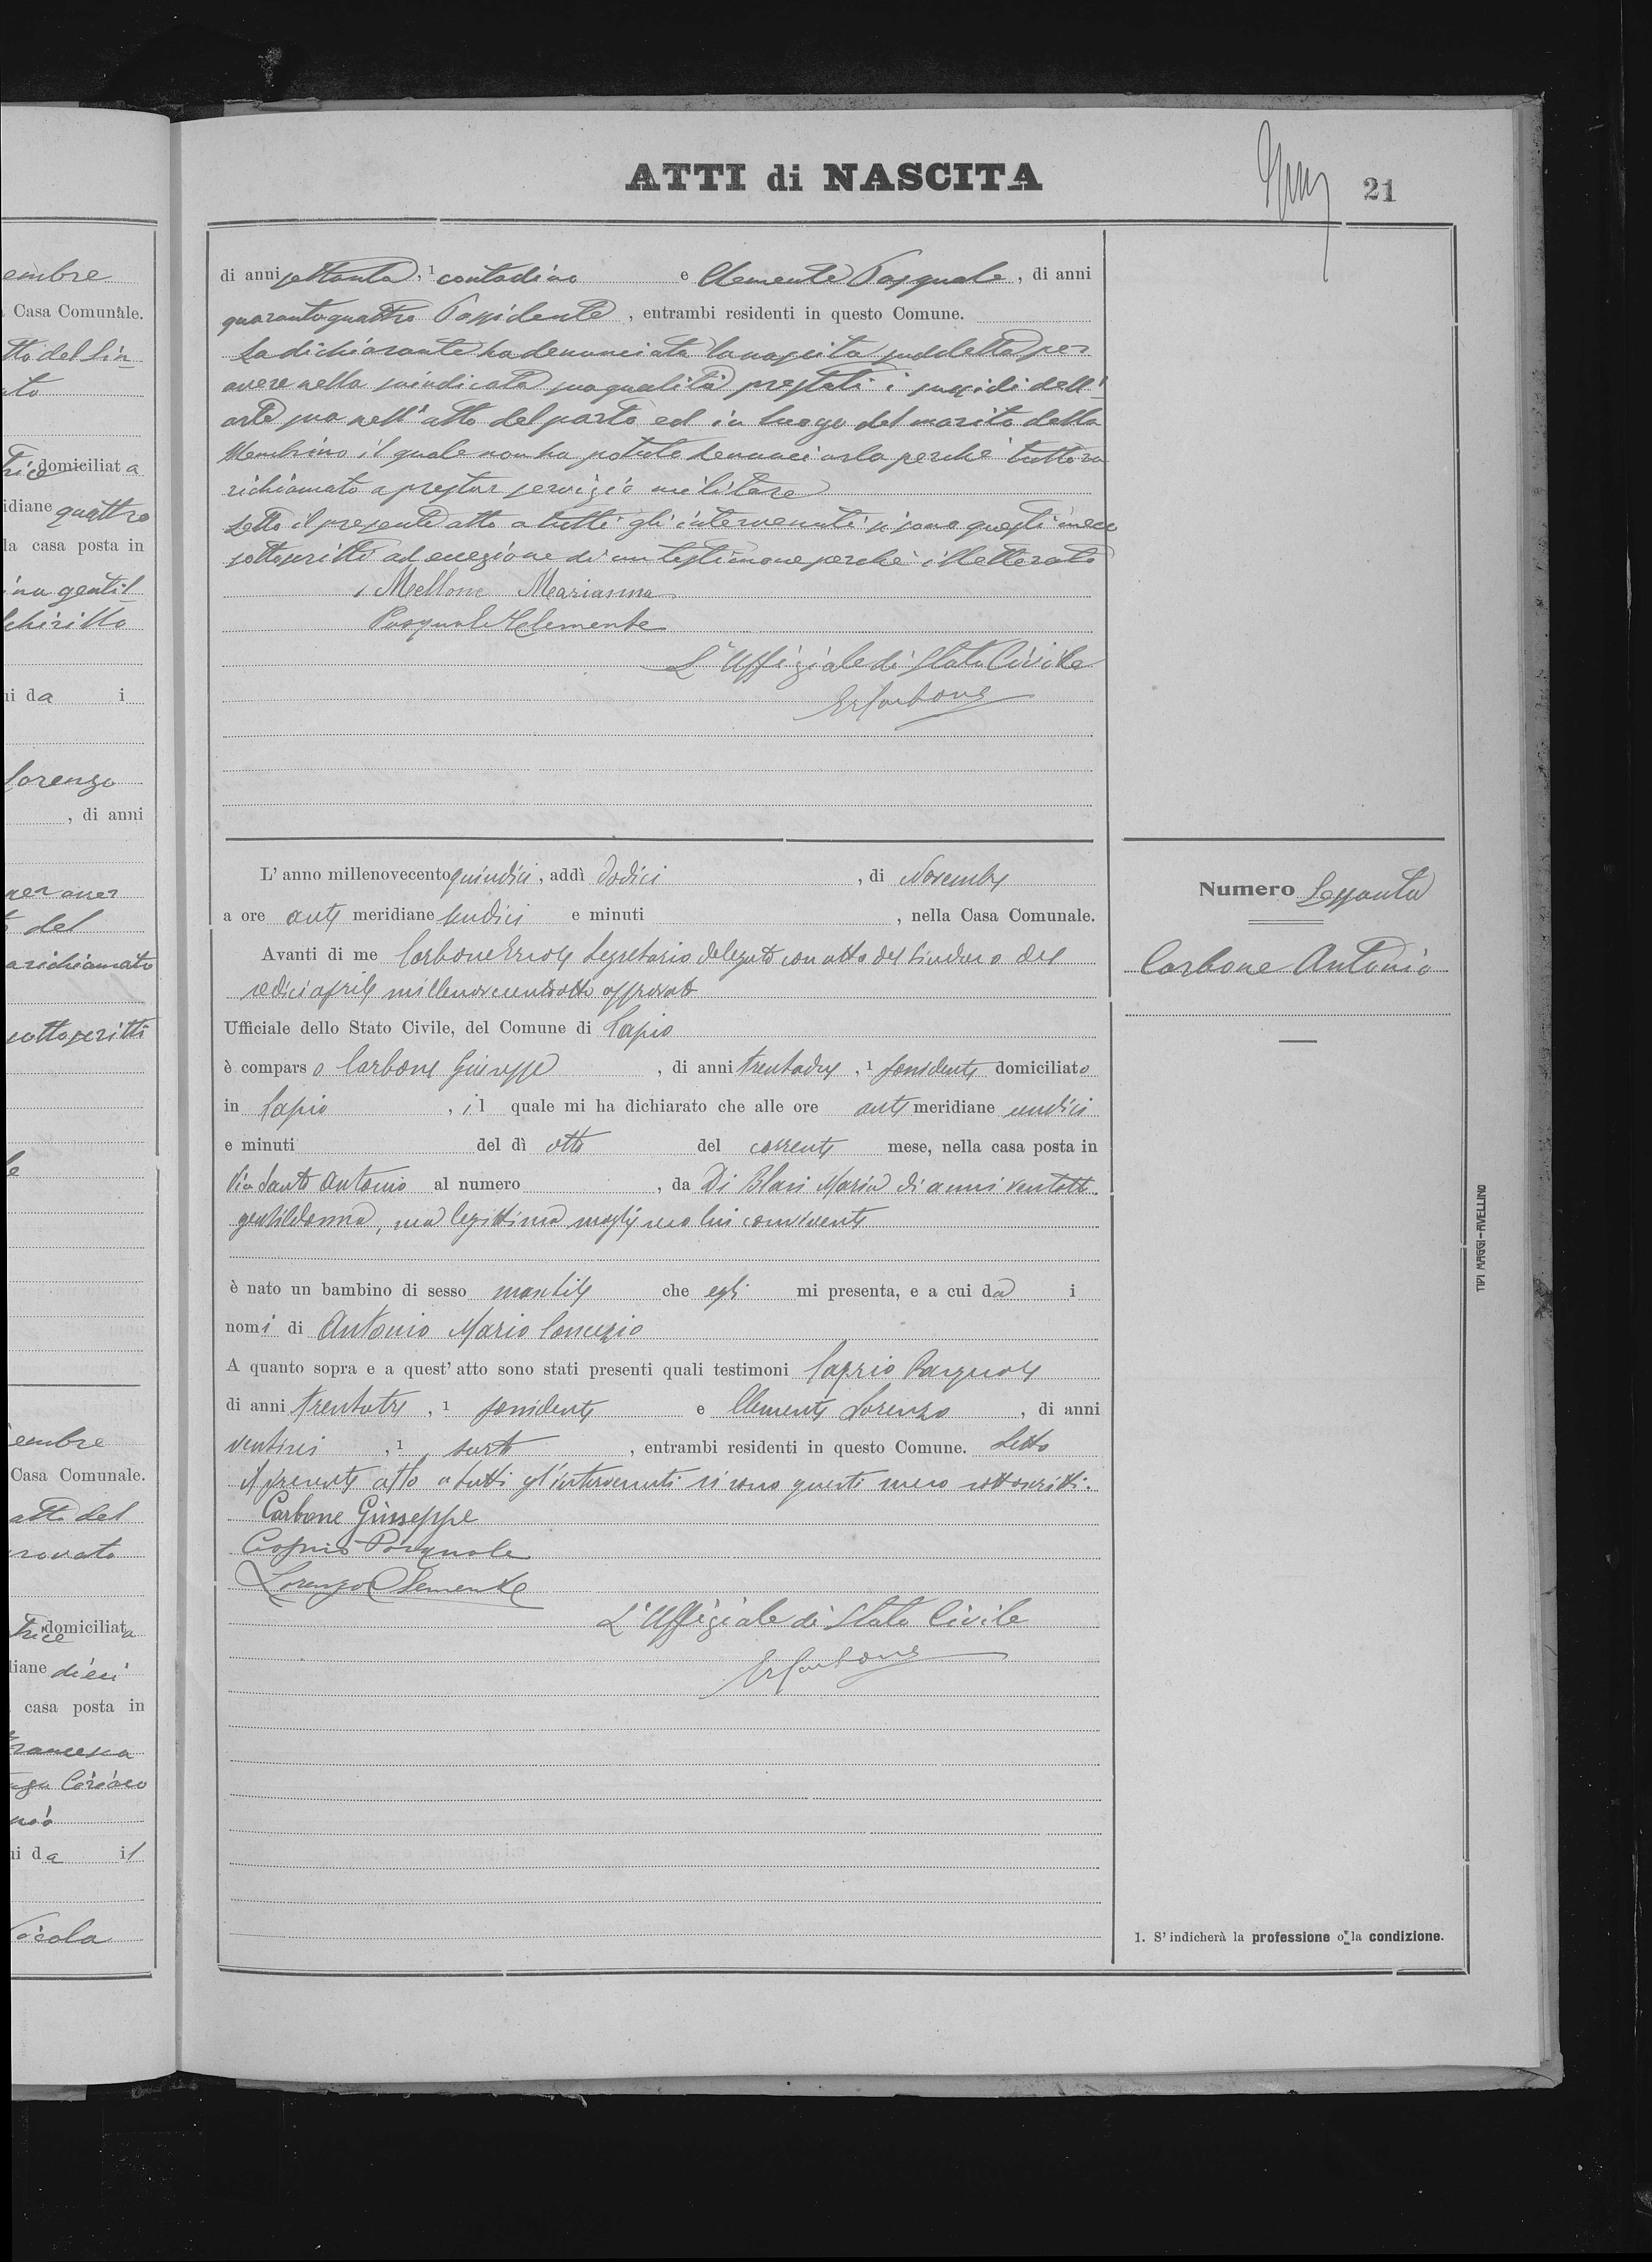 ATTI di NASCITA
21
di anni settanta, 1 contadino e Clemente Pasquale, di anni
quarantaquattro Possidente, entrambi residenti in questo Comune.
La dichiarante ha denunciata la nascita suddetta per
avere nella suindicata sua qualità prestati i sussidi dell'
arte sua nell'atto del parto ed in luogo del marito della
il quale non ha potuto denunciarla perchè tuttora
richiamato a prestar servizio militare
Letto il presente atto a tutti gli intervenuti si sono questi meco
sottoscritti ad eccezione di un testimone perchè illetterato
Mellone Marianna
Pasquale Clemente
L'Uffiziale di Stato Civile
Er Carbone
L'anno millenovecentoquindici, addì dodici, di Novembre
a ore anti meridiane undici e minuti, nella Casa Comunale.
Avanti di me Carbone Ercole Segretario delegato con atto del Sindaco del
sedici aprile millenovecentootto approvato
Ufficiale dello Stato Civile, del Comune di Lapio
è comparso Carbone Giuseppe, di anni trentadue, 1 possidente domiciliato
in Lapio, il quale mi ha dichiarato che alle ore anti meridiane undici
e minuti del dì otto del corrente mese, nella casa posta in
Via Santo Antonio al numero, da Di Blasi Maria di anni ventotto
gentildonna, sua legittima moglie seco lui convivente
è nato un bambino di sesso maschile che egli mi presenta, e a cui da i
nomi di Antonio Mario Concezio
A quanto sopra e a quest'atto sono stati presenti quali testimoni Caprio Pasquale
di anni trentatre, 1 possidente e Clemente Lorenzo, di anni
ventisei, 1 sarto, entrambi residenti in questo Comune. Letto
il presente atto a tutti gl'intervenuti si sono questi meco sottoscritti.
Carbone Giuseppe
Caprio Pasquale
Lorenzo Clemente
L'Uffiziale di Stato Civile
Er Carbone
Numero Sessanta
Carbone Antonio
1. S'indicherà la professione o la condizione.
TIPI MAGGI-AVELLINO
embre
Casa Comunale.
tto del Sin-
ato
trice domiciliata
idiane quattro
la casa posta in
ina gentil-
chirillo
ui da i
Lorenzo
, di anni
per aver
del
a richiamato
sottoscritti
embre
Casa Comunale.
atto del
rovato
trice domiciliata
diane dieci
casa posta in
Francesca
ui da il
Nicola